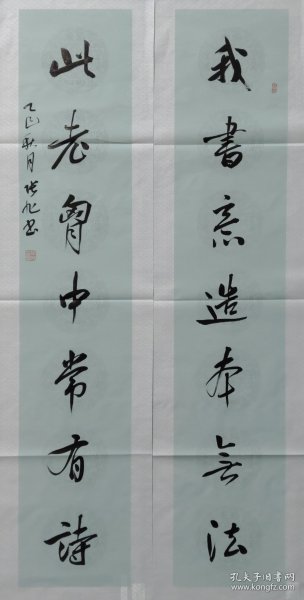 我書意造本無法
此老胷中常有詩
乙巳秋月张旭書
孔夫子旧书网